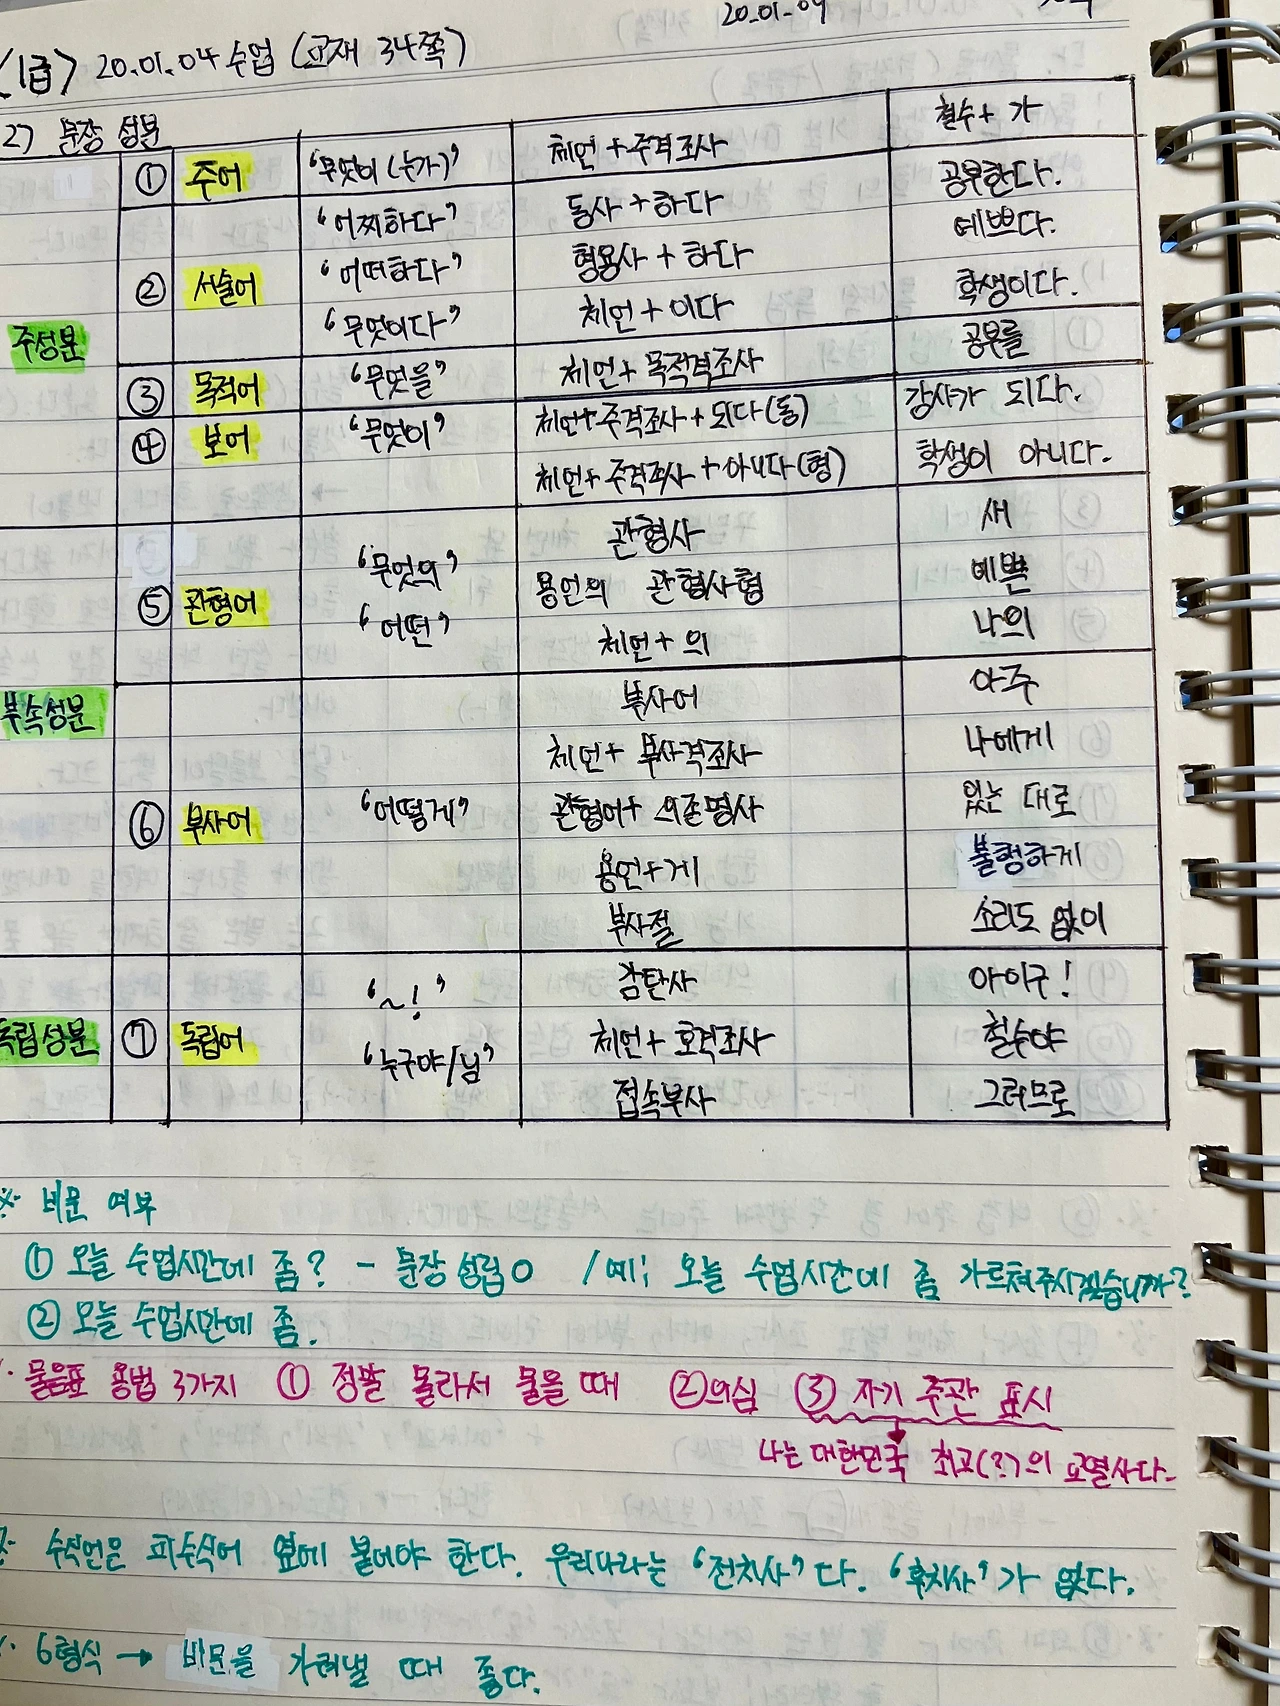 20.01.04
(1급) 20.01.04 수업 (교재 34쪽)
2) 문장 성분
주성분
① 주어 "무엇이(누가)" 체언+주격조사 철수+가
② 서술어
"어찌하다" 동사+하다 공부한다.
"어떠하다" 형용사+하다 예쁘다.
"무엇이다" 체언+이다 학생이다.
③ 목적어 "무엇을" 체언+목적격조사 공부를
④ 보어 "무엇이" 체언+주격조사+되다(동) 강사가 되다.
체언+주격조사+아니다(형) 학생이 아니다.
부속성분
⑤ 관형어 "무엇의" "어떤"
관형사 새
용언의 관형사형 예쁜
체언+의 나의
⑥ 부사어 "어떻게"
부사어 아주
체언+부사격조사 나에게
관형어+의존명사 있는 대로
용언+게 불행하게
부사절 소리도 없이
독립성분
⑦ 독립어 "~!" "누구야/님"
감탄사 아이구!
체언+호격조사 철수야
접속부사 그러므로
※ 비문 여부
① 오늘 수업시간에 좀? - 문장 성립○ /예; 오늘 수업시간에 좀 가르쳐주시겠습니까?
② 오늘 수업시간에 좀.
물음표 용법 3가지 ① 정말 몰라서 물을 때 ②의심 ③ 자기 주관 표시
나는 대한민국 최고(?)의 모열사다.
수식언은 피수식어 옆에 붙어야 한다. 우리나라는 "전치사"다. "후치사"가 없다.
6형식 → 비문을 가려낼 때 좋다.